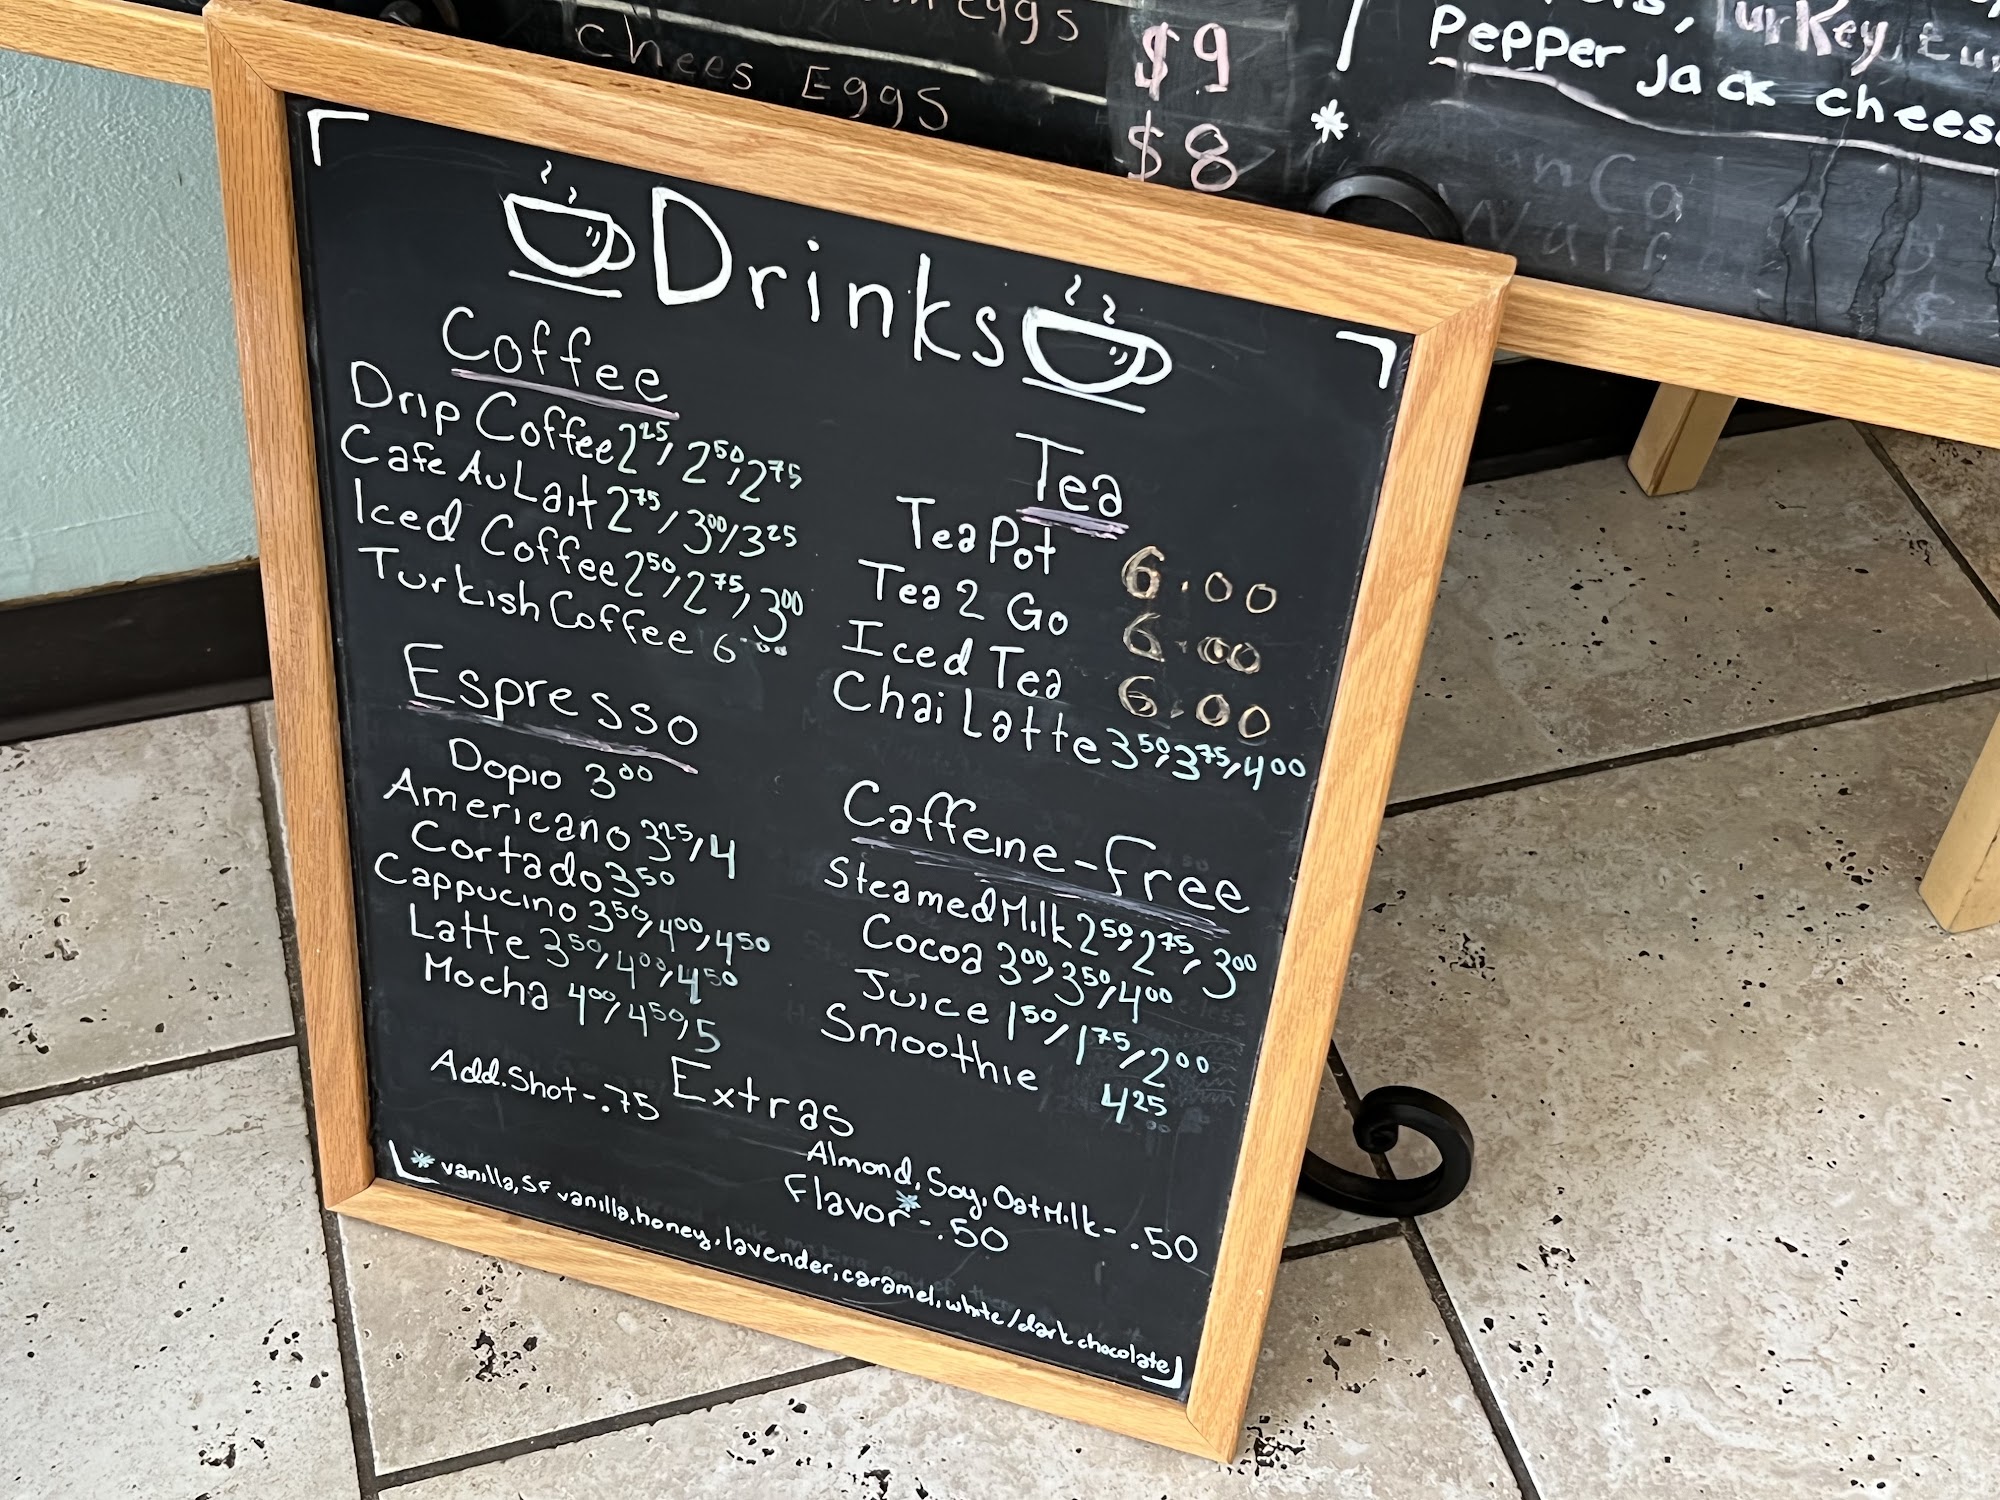 eggs $9
chees Eggs $8
Turkey
Pepper Jack chees
*
Drinks
Coffee
Drip Coffee 2.25, 2.50, 2.75
Cafe Au Lait 2.75/3.00/3.25
Iced Coffee 2.50, 2.75, 3.00
Turkish Coffee 6.00
Espresso
Dopio 3.00
Americano 3.25, 4
Cortado 3.50
Cappucino 3.50, 4.00, 4.50
Latte 3.50, 4.00, 4.50
Mocha 4.00, 4.50, 5
Tea
Tea Pot 6.00
Tea 2 Go 6.00
Iced Tea 6.00
Chai Latte 3.50, 3.75, 4.00
Caffeine-Free
Steamed Milk 2.50, 2.75, 3.00
Cocoa 3.00, 3.50, 4.00
Juice 1.50/1.75/2.00
Smoothie 4.25
Extras
Add. Shot-.75
Almond, Soy, Oat Milk-.50
Flavor*-.50
* vanilla, SF vanilla, honey, lavender, caramel, white/dark chocolate